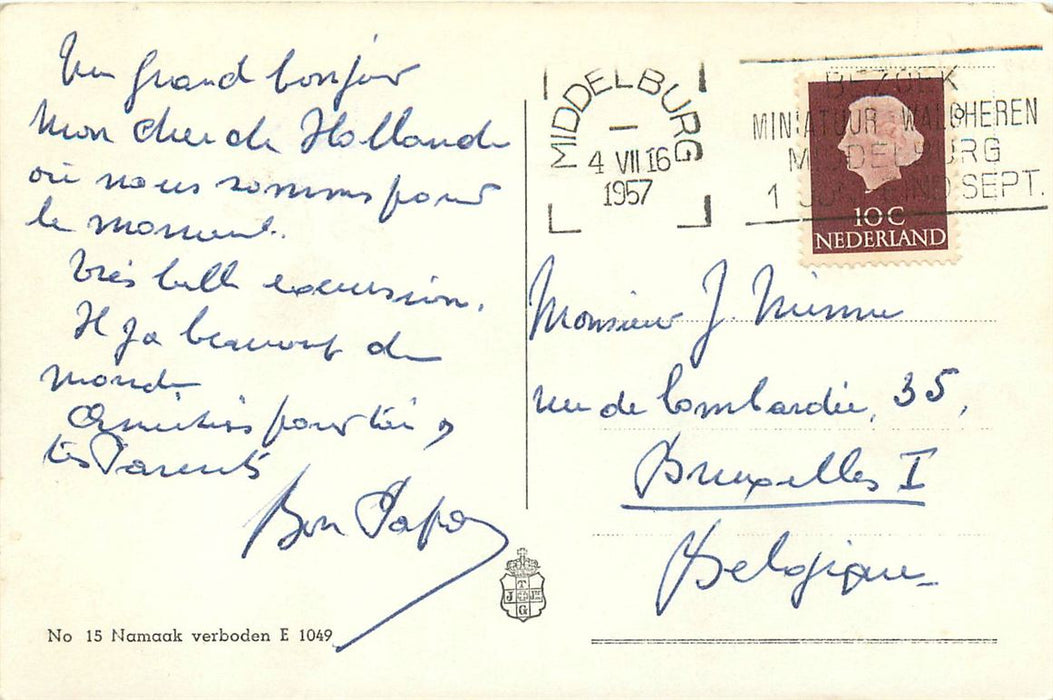 Un grand bonjour
Mon cher de Hollande
où nous sommes pour
le moment.
Très belle excursion.
Il y a beaucoup de
monde
Amitiés pour toi &
tes Parents
Bon Papa
No 15 Namaak verboden E 1049
T
J Jr
G
MIDDELBURG
4 VII 16
1957
BEZOEK
MINIATUUR WALCHEREN
MIDDELBURG
1 SEPT.
10 C
NEDERLAND
Monsieur J.
rue de Lombardie, 35,
Bruxelles I
Belgique